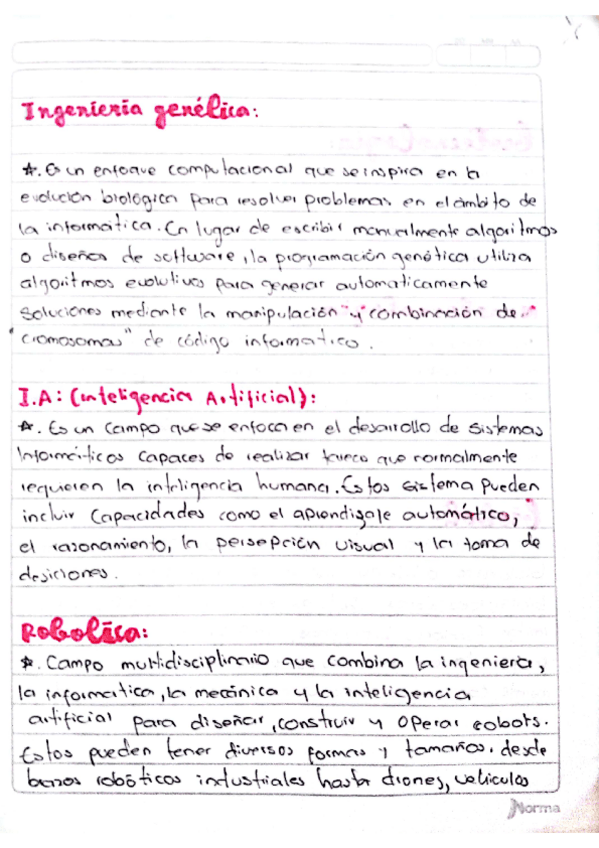 Ingenieria genética:
☆. Es un enfoque computacional que se inspira en la
evolución biológica para resolver problemas en el ámbito de
la informática. En lugar de escribir manualmente algoritmos
o diseños de software, la programación genética utiliza
algoritmos evolutivos para generar automaticamente
soluciones mediante la manipulación "y" combinación de
"cromosomas" de código informatico.
I.A: (inteligencia Artificial):
☆. Es un campo que se enfoca en el desarollo de sistemas
informáticos capaces de realizar tarea que normalmente
requieren la inteligencia humana. Estos sistema pueden
incluir capacidades como el aprendizaje automático,
el razonamiento, la persepción visual y la toma de
desiciones.
Robotica:
☆. Campo multidisciplinario que combina la ingeniera,
la informatica, la mecánica y la inteligencia
artificial para diseñar, construir y operar robots.
Estos pueden tener diversos formas y tamaños, desde
brazos robóticos industriales hasta drones, vehiculos
Norma